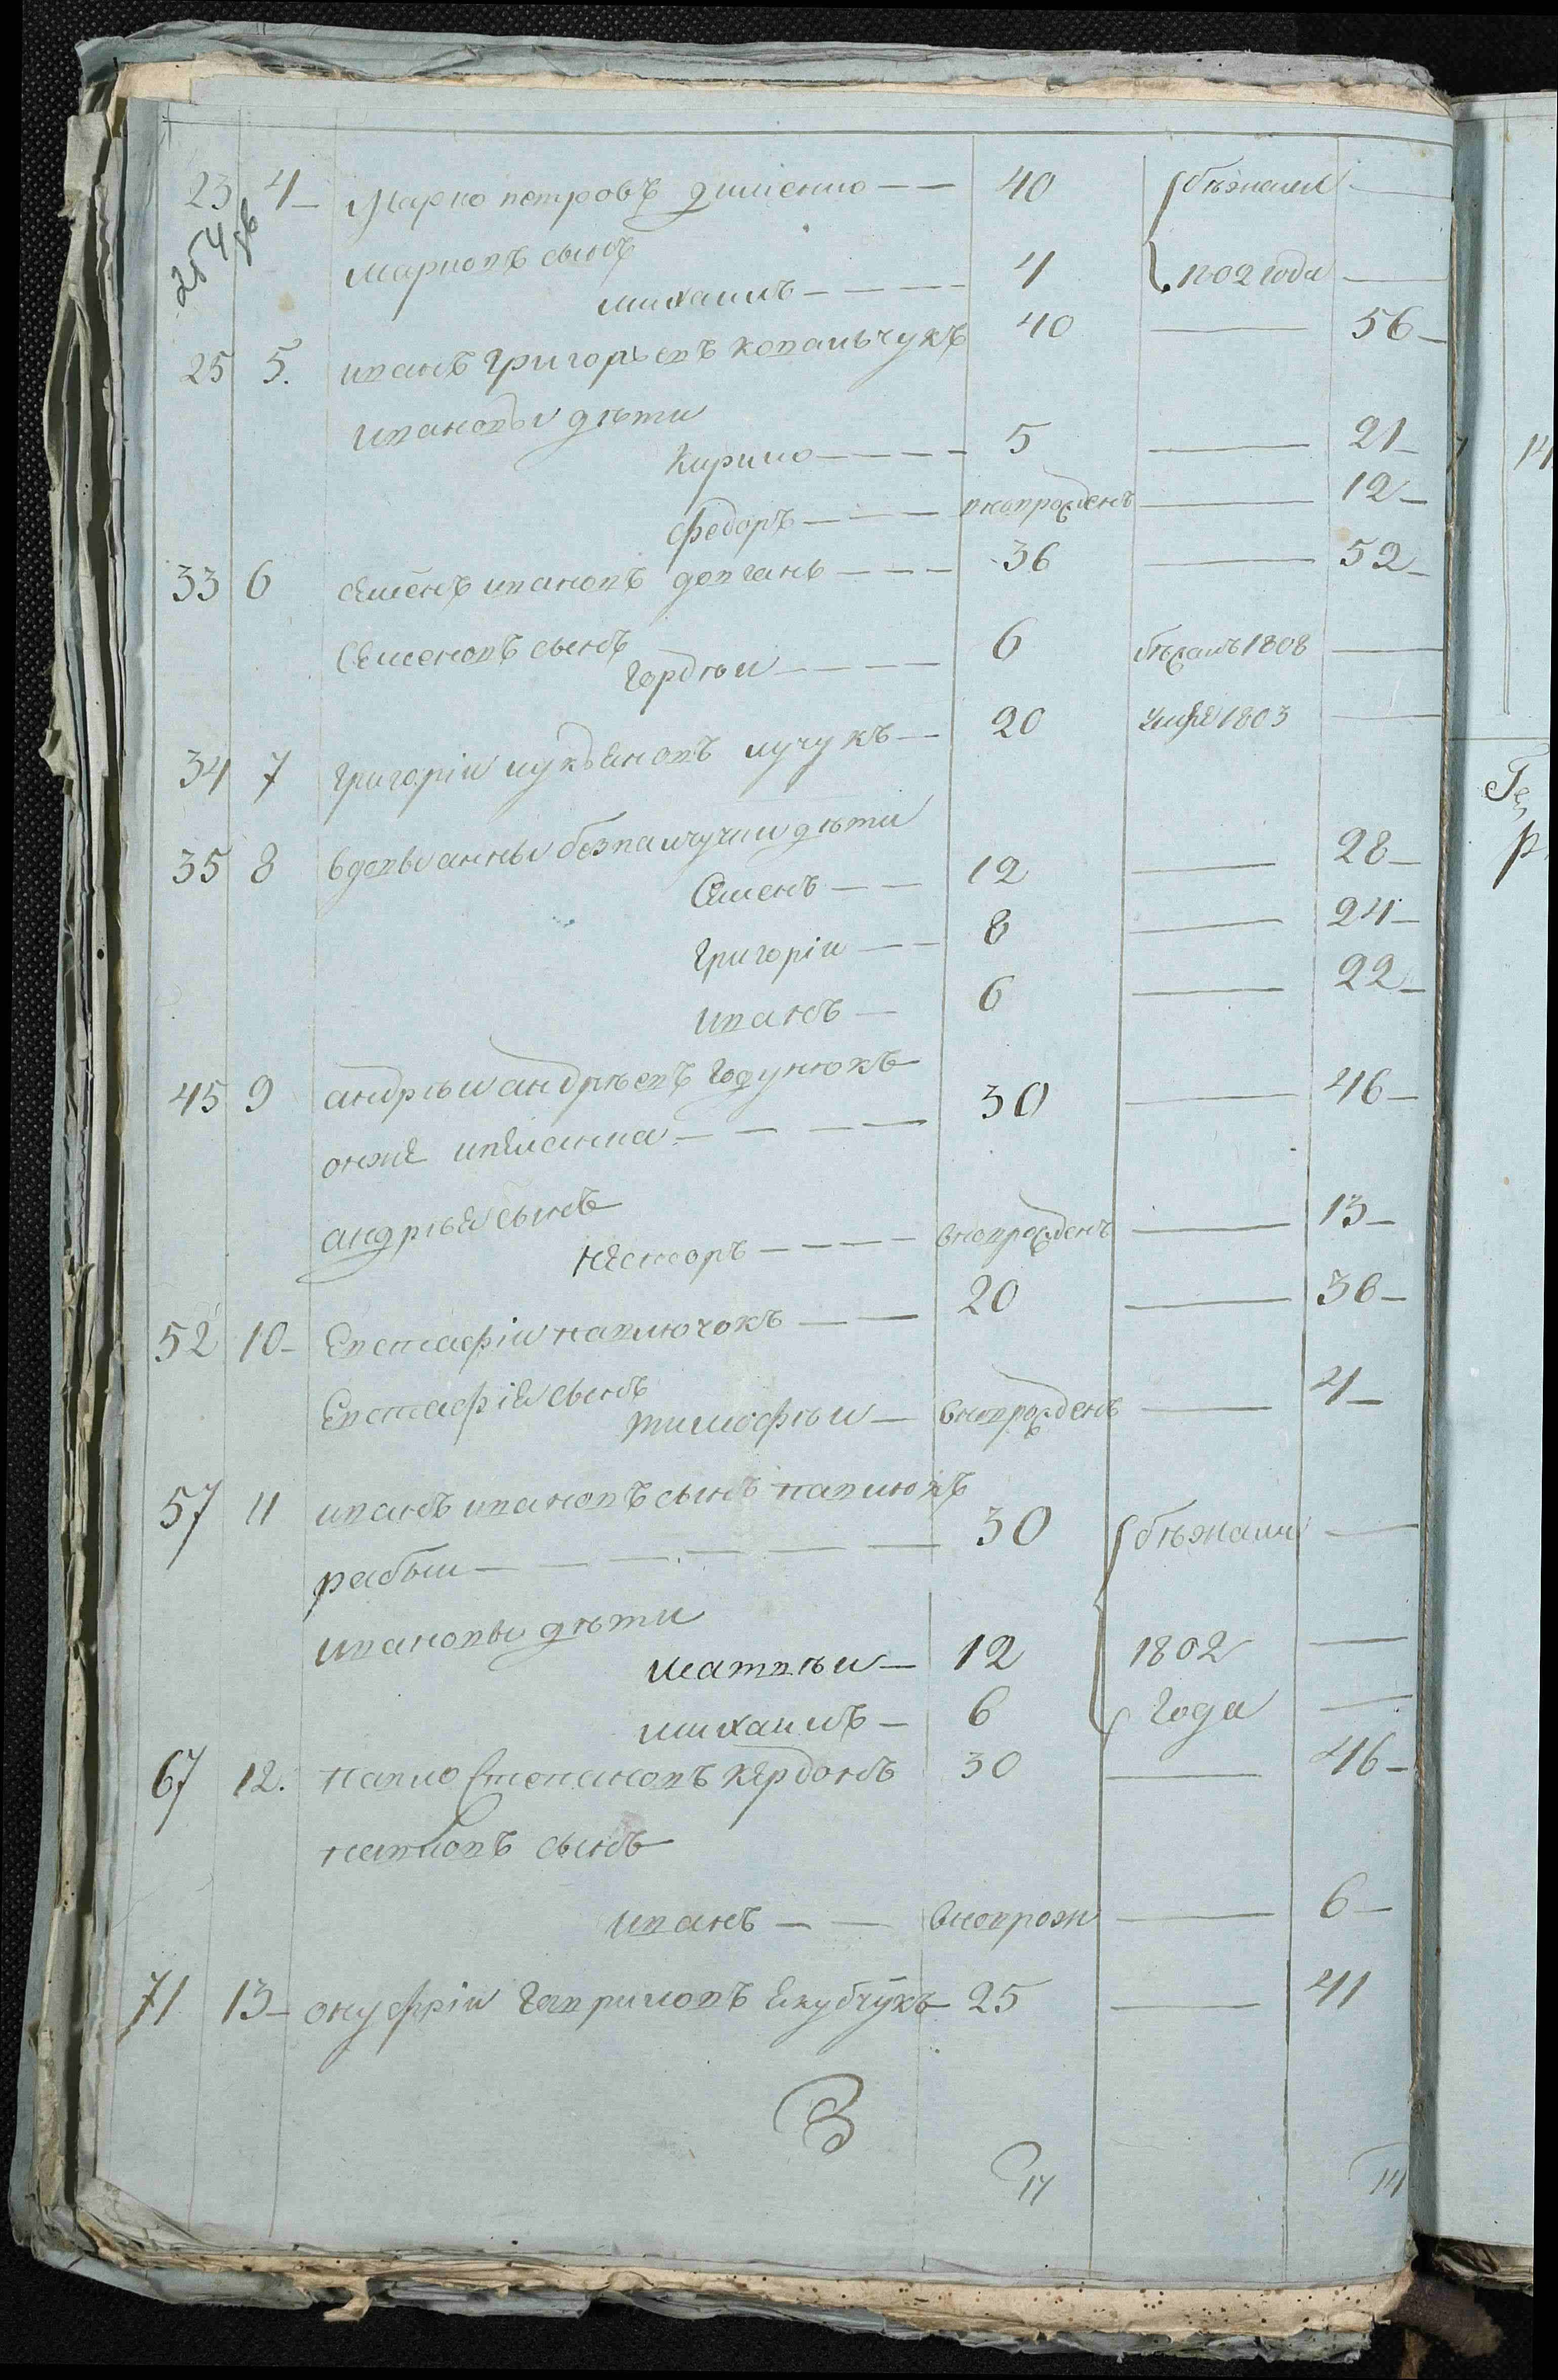 23 4 Марко петровъ димѣнко 40 бѣжали
254 об
марковъ сынъ
михаилъ 4 1802 года
25 5. иванъ григорьевъ ковальчукъ 40 56
ивановы дѣти
Кирило 5 21
федоръ вноврожденъ 12
33 6 семенъ ивановъ довгань 36 52
Семеновъ сынъ
гордѣй 6 бѣжалъ 1808
34 7 григоріи лукьяновъ лучукъ 20 умре 1803
35 8 вдовы анны дѣти
Семенъ 12 28
григоріи 8 24
иванъ 6 22
45 9 андрѣи андрѣевъ годунюкъ
онже 30 46
андрѣя сынъ
нестеръ вноврожденъ 13
52 10 Евстафіи павлючокъ 20 36
Евстафія сынъ
тимофѣи вноврожденъ 4
57 11 ивань ивановъ сынъ павлюкъ
рабыи 30 бѣжали
ивановы дѣти
матвѣи 12 1802
михаилъ 6 года
67 12. павло Степановъ кердонъ 30 46
павловъ сынъ
иванъ вноврож 6
71 13 онуфріи гавриловъ якубчукъ 25 41
17 14
14